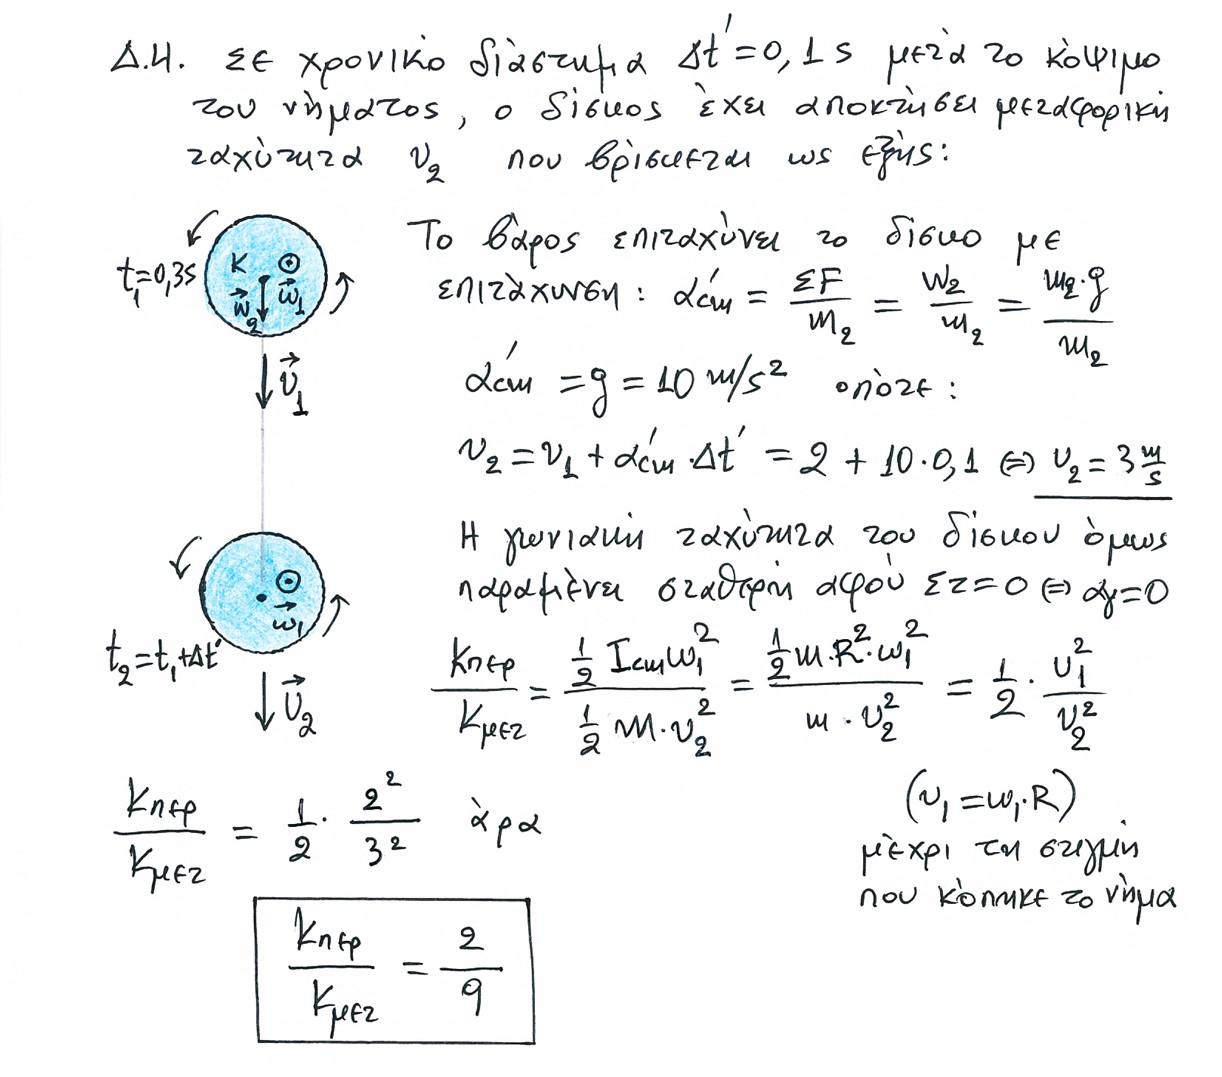 Δ.4. Σε χρονικό διάστημα Δt΄=0,1 s μετά το κόψιμο
του νήματος, ο δίσκος έχει αποκτήσει μεταφορική
ταχύτητα υ₂ που βρίσκεται ως εξής:
t₁=0,3s
K
w⃗₂ ω⃗₁
υ⃗₁
Το βάρος επιταχύνει το δίσκο με
επιτάχυνση: α΄cm = ΣF/m₂ = W₂/m₂ = m₂·g/m₂
α΄cm = g = 10 m/s² οπότε:
υ₂ = υ₁ + α΄cm·Δt΄ = 2 + 10·0,1 ⇔ υ₂ = 3 m/s
Η γωνιακή ταχύτητα του δίσκου όμως
παραμένει σταθερή αφού Στ=0 ⇔ αγ=0
ω⃗₁
t₂=t₁+Δt΄
υ⃗₂
Kπερ/Kμετ = ½ Icm ω₁² / ½ m·υ₂² = ½ m·R²·ω₁² / m·υ₂² = 1/2 · υ₁²/υ₂²
(υ₁=ω₁·R)
μέχρι τη στιγμή
που κόπηκε το νήμα
Kπερ/Kμετ = 1/2 · 2²/3² άρα
Kπερ/Kμετ = 2/9